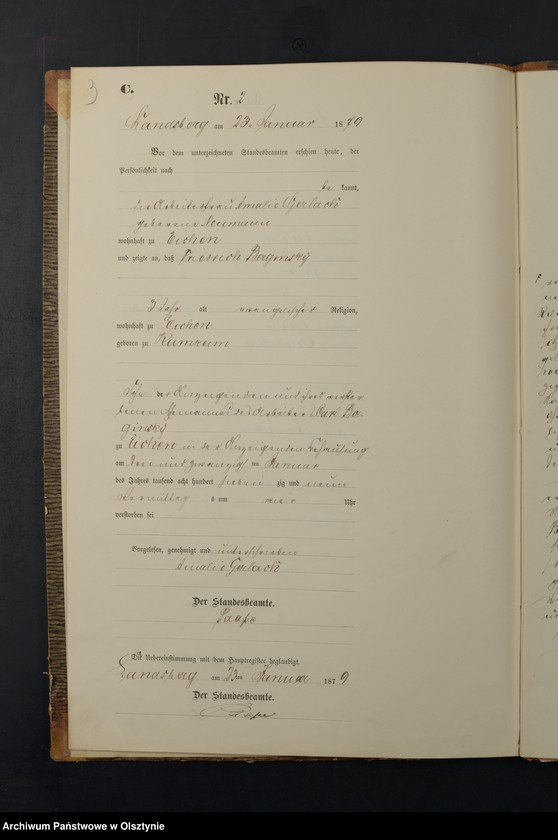 3
C.
Nr. 2
Landsberg am 23. Januar 1879
Vor dem unterzeichneten Standesbeamten erschien heute, der
Persönlichkeit nach
be kannt,
die Arbeiterfrau Amalie Gerlach
geborene Neumann
wohnhaft zu Eichen
und zeigte an, daß Friedrich Baginsky
3 Jahr alt evangelischer Religion,
wohnhaft zu Eichen
geboren zu
Sohn der Anzeigenden und ihres verstor
benen Ehemannes des Arbeiters Carl Ba
ginsky
zu Eichen in der Anzeigenden Behausung
am drei und zwanzigsten Januar
des Jahres tausend acht hundert sieben zig und neun
Vormittag s um vier Uhr
verstorben sei
Vorgelesen, genehmigt und unterschrieben
Amalie Gerlach
Der Standesbeamte.
Die Uebereinstimmung mit dem Hauptregister beglaubigt.
Landsberg am 23ten Januar 1879
Der Standesbeamte.
Archiwum Państwowe w Olsztynie